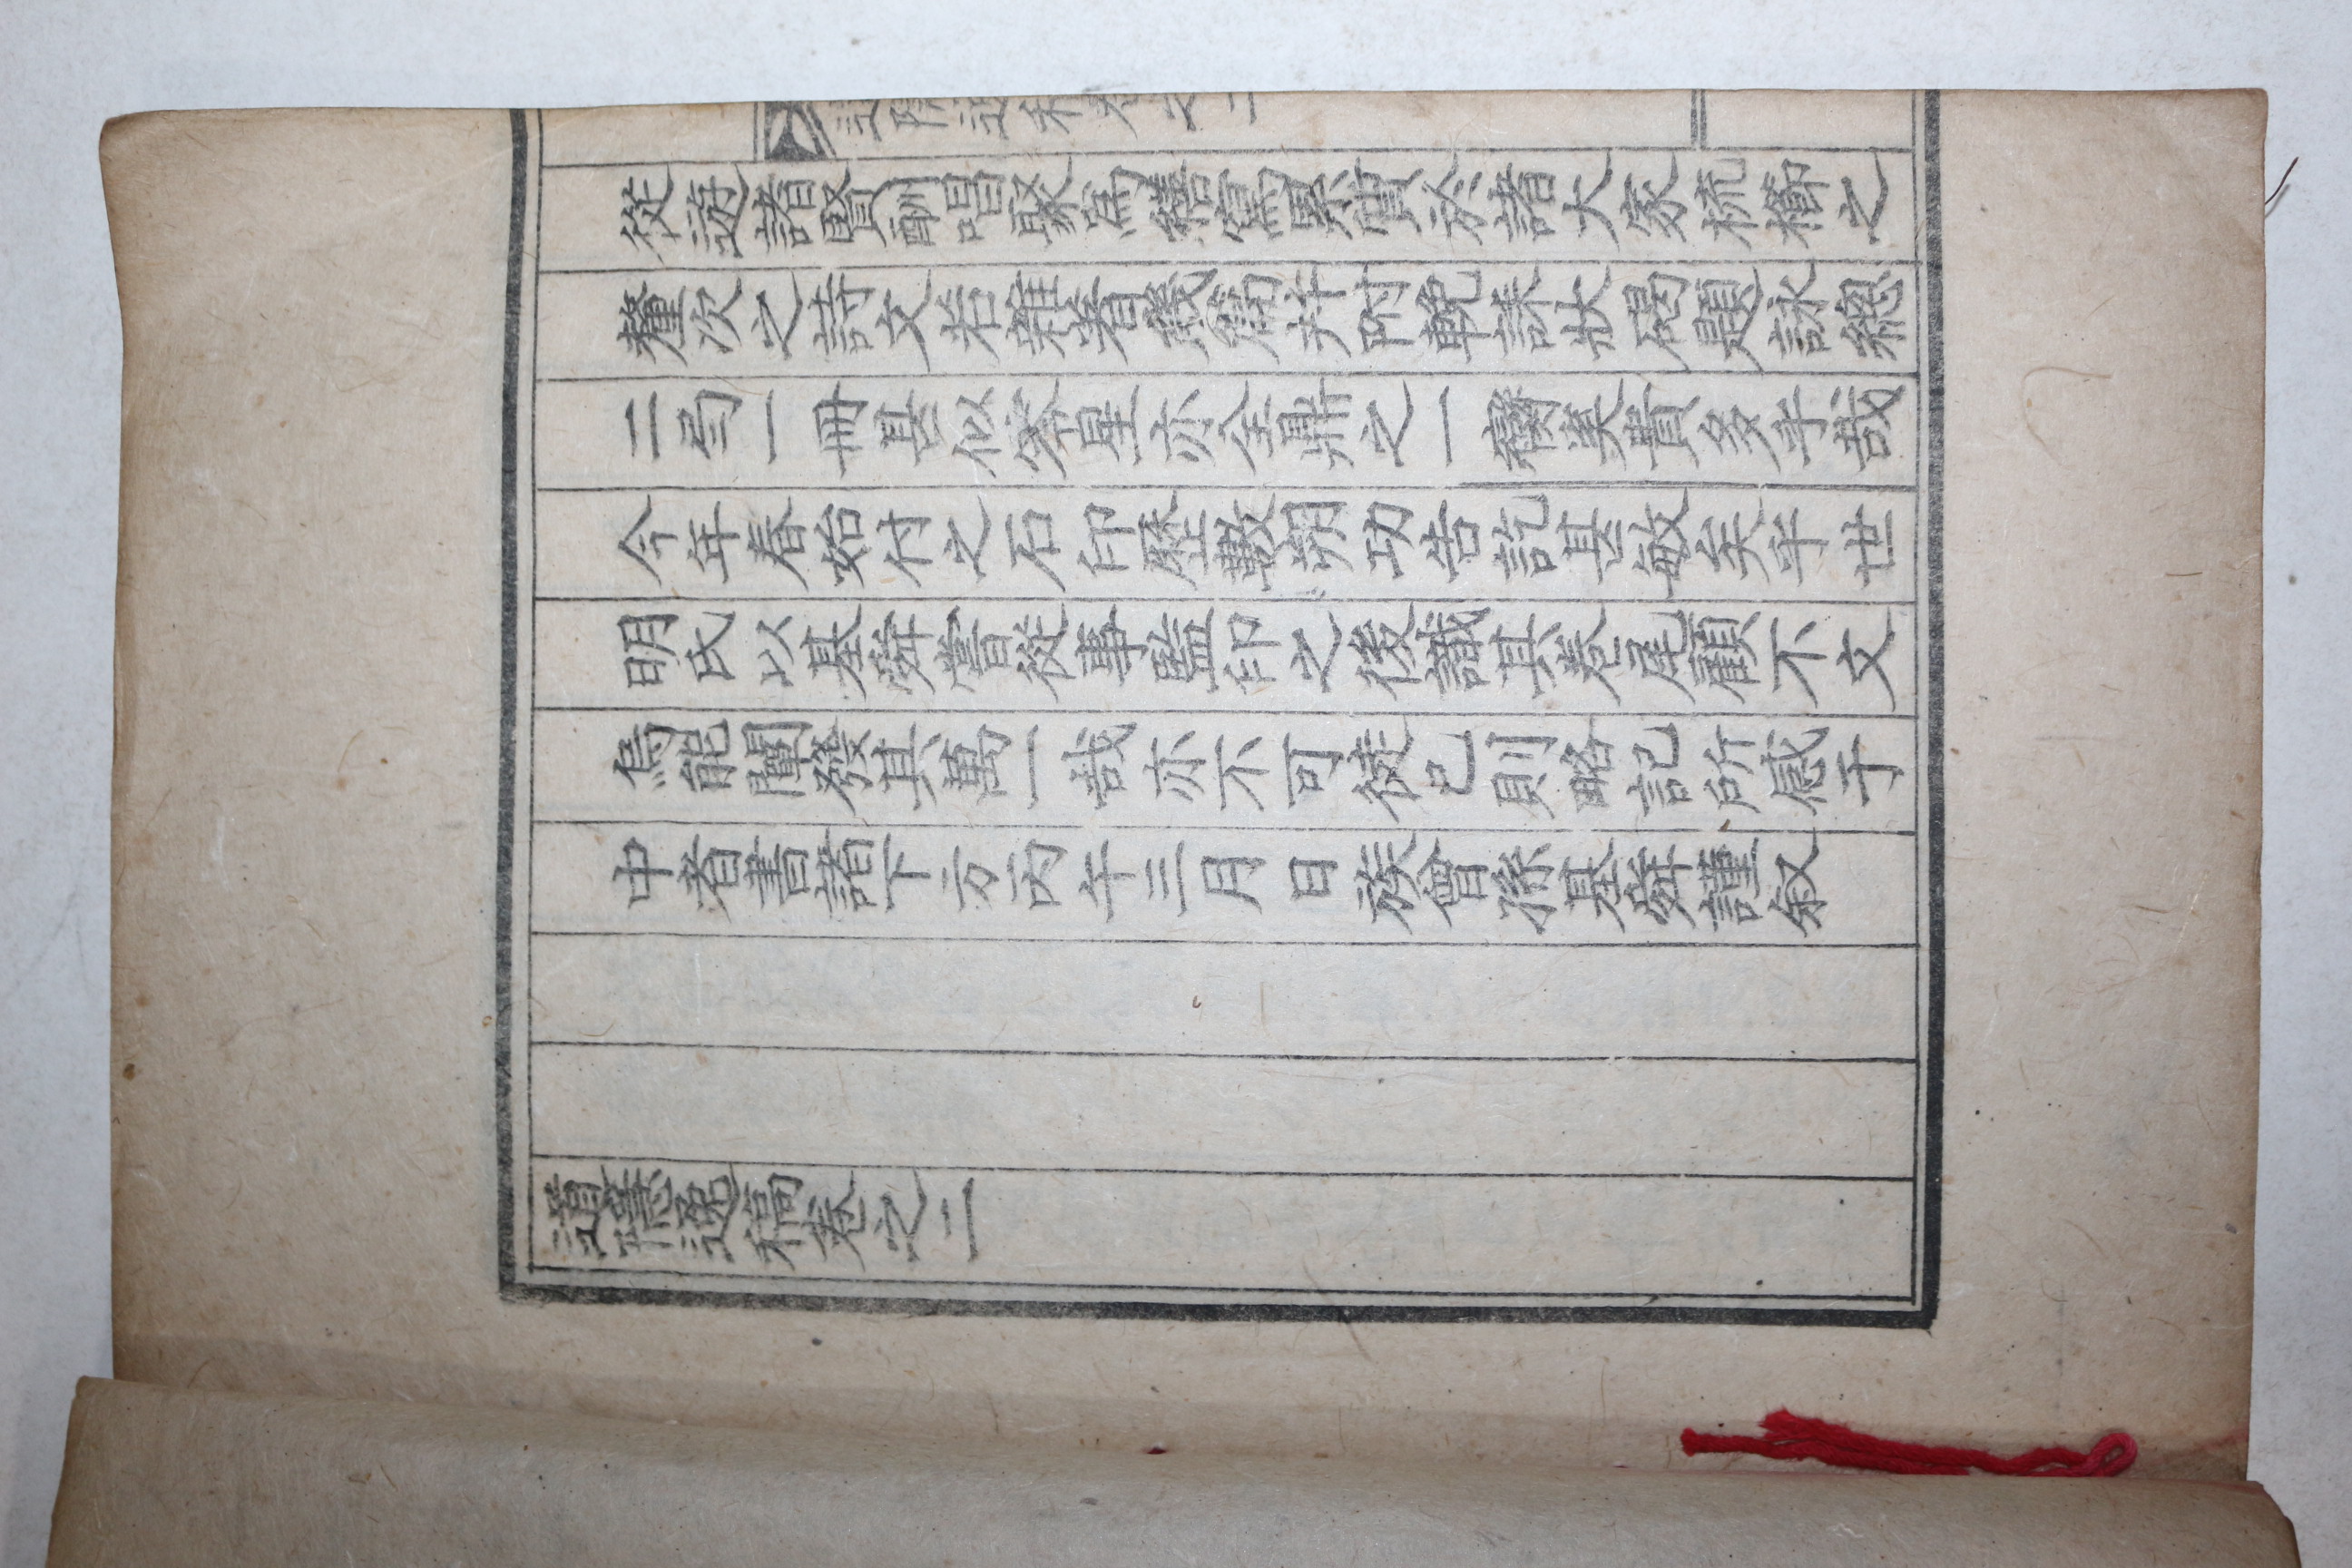 道隱逸稿卷之二
從遊諸賢酬唱聚寫繕寫累質於諸大家梳櫛之
釐次之詩文若雜著幾篇幷附輓誄狀碣題詠總
二弓一冊甚似零星亦全鼎之一臠奚貴多乎哉
今年春始付之石印歷數朔功告訖甚敏矣乎世
明氏以基舜嘗從事監印之後識其卷尾顧不文
烏能闡發其萬一哉亦不可徒已則略記所感于
中者書諸下方丙午三月日族曾孫基舜謹叙
道隱逸稿卷之二